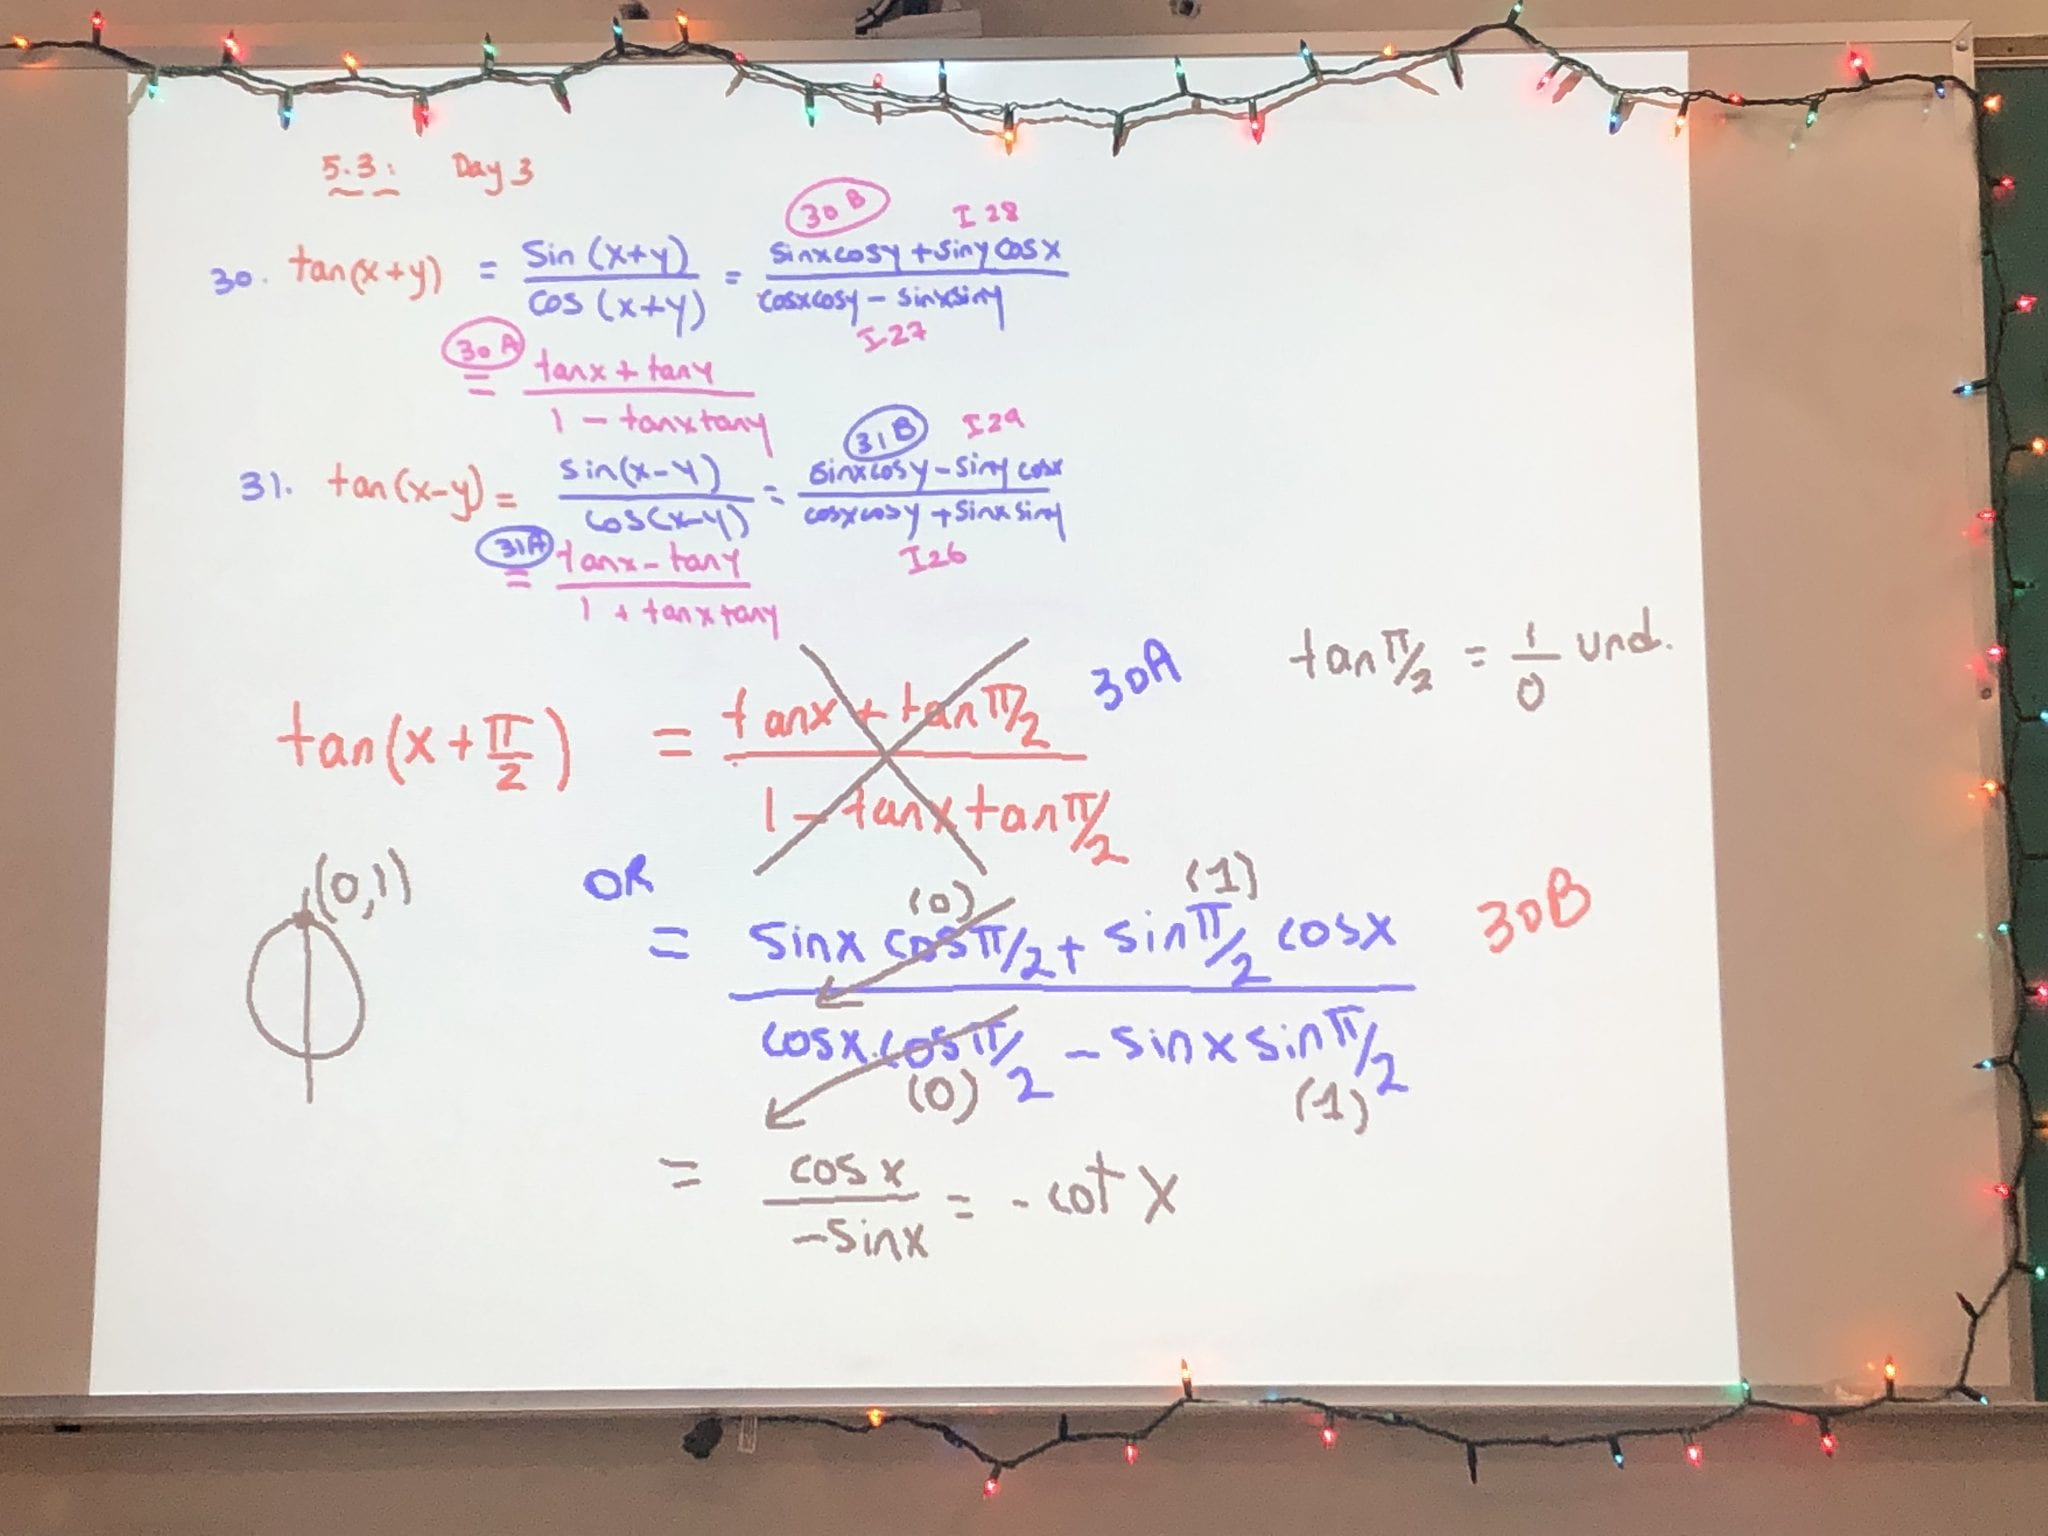 5.3: Day 3
30 B I 28
30. tan(x+y) = sin(x+y)/cos(x+y) = sinxcosy+sinycosx/cosxcosy-sinxsiny
I27
30A = tanx+tany/1-tanxtany
31B I29
31. tan(x-y) = sin(x-y)/cos(x-y) = sinxcosy-sinycosx/cosxcosy+sinxsiny
I26
31A = tanx-tany/1+tanxtany
tan(x+π/2) = tanx+tanπ/2/1-tanxtanπ/2 30A
tanπ/2 = 1/0 und.
(0,1)
OR
(0) (1)
= sinx cosπ/2 + sinπ/2 cosx/cosx.cosπ/2 - sinx sinπ/2 30B
(0) (1)
= cosx/-sinx = -cot x